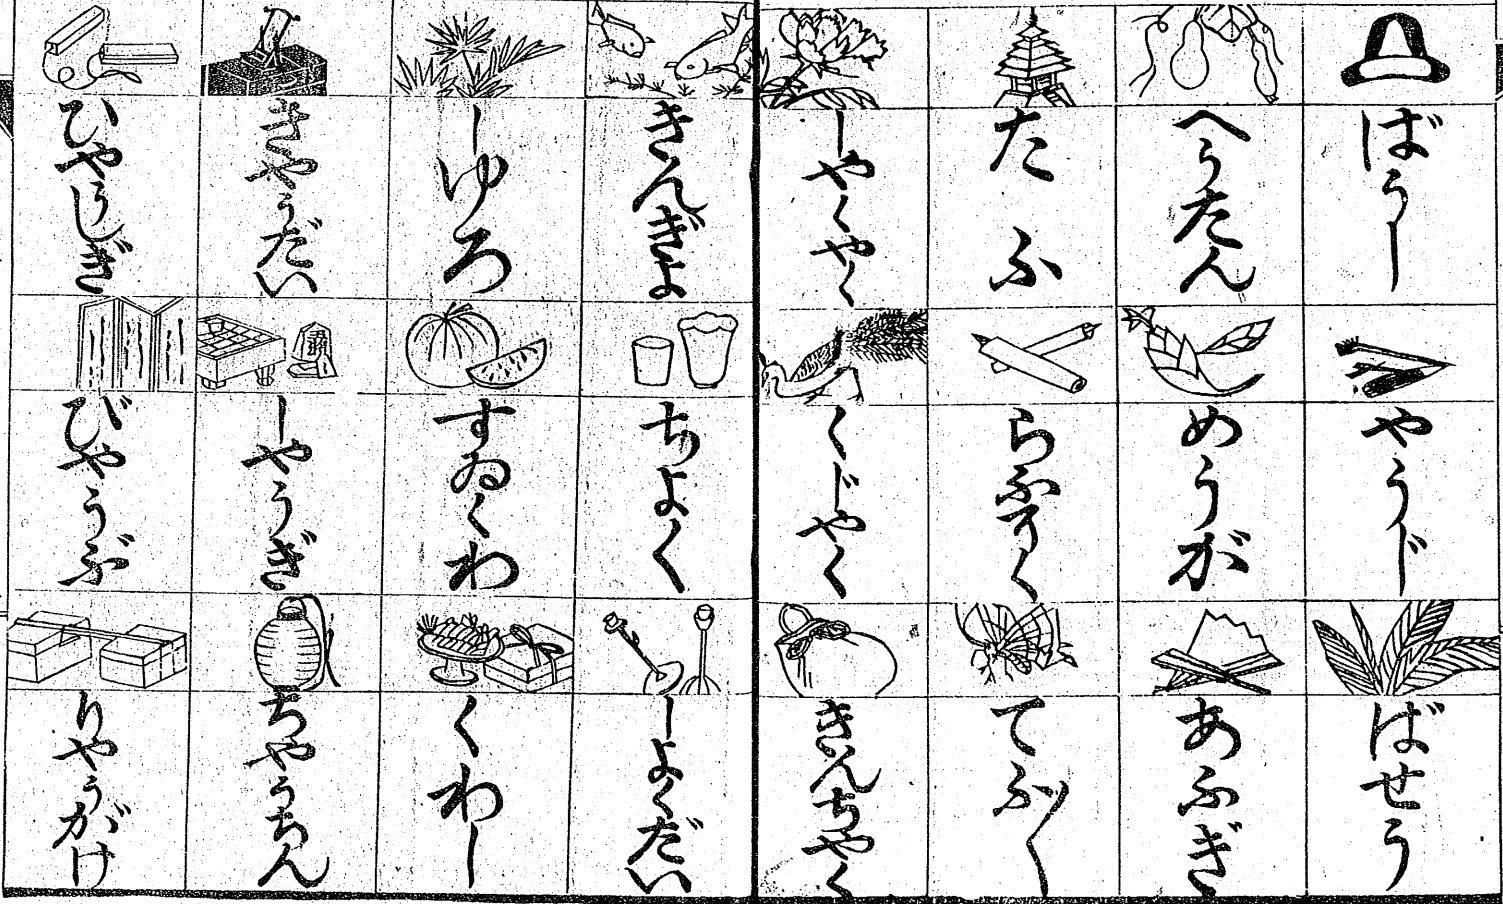 ばうし
やうじ
ばせう
へうたん
めうが
あふぎ
たふ
らふそく
てふ〳〵
しやくやく
くじやく
きんちやく
きんぎよ
ちよく
しよくだい
しゆろ
すゐくわ
くわし
きやうだい
しやうぎ
ちやうちん
ひやうしぎ
びやうぶ
りやうがけ